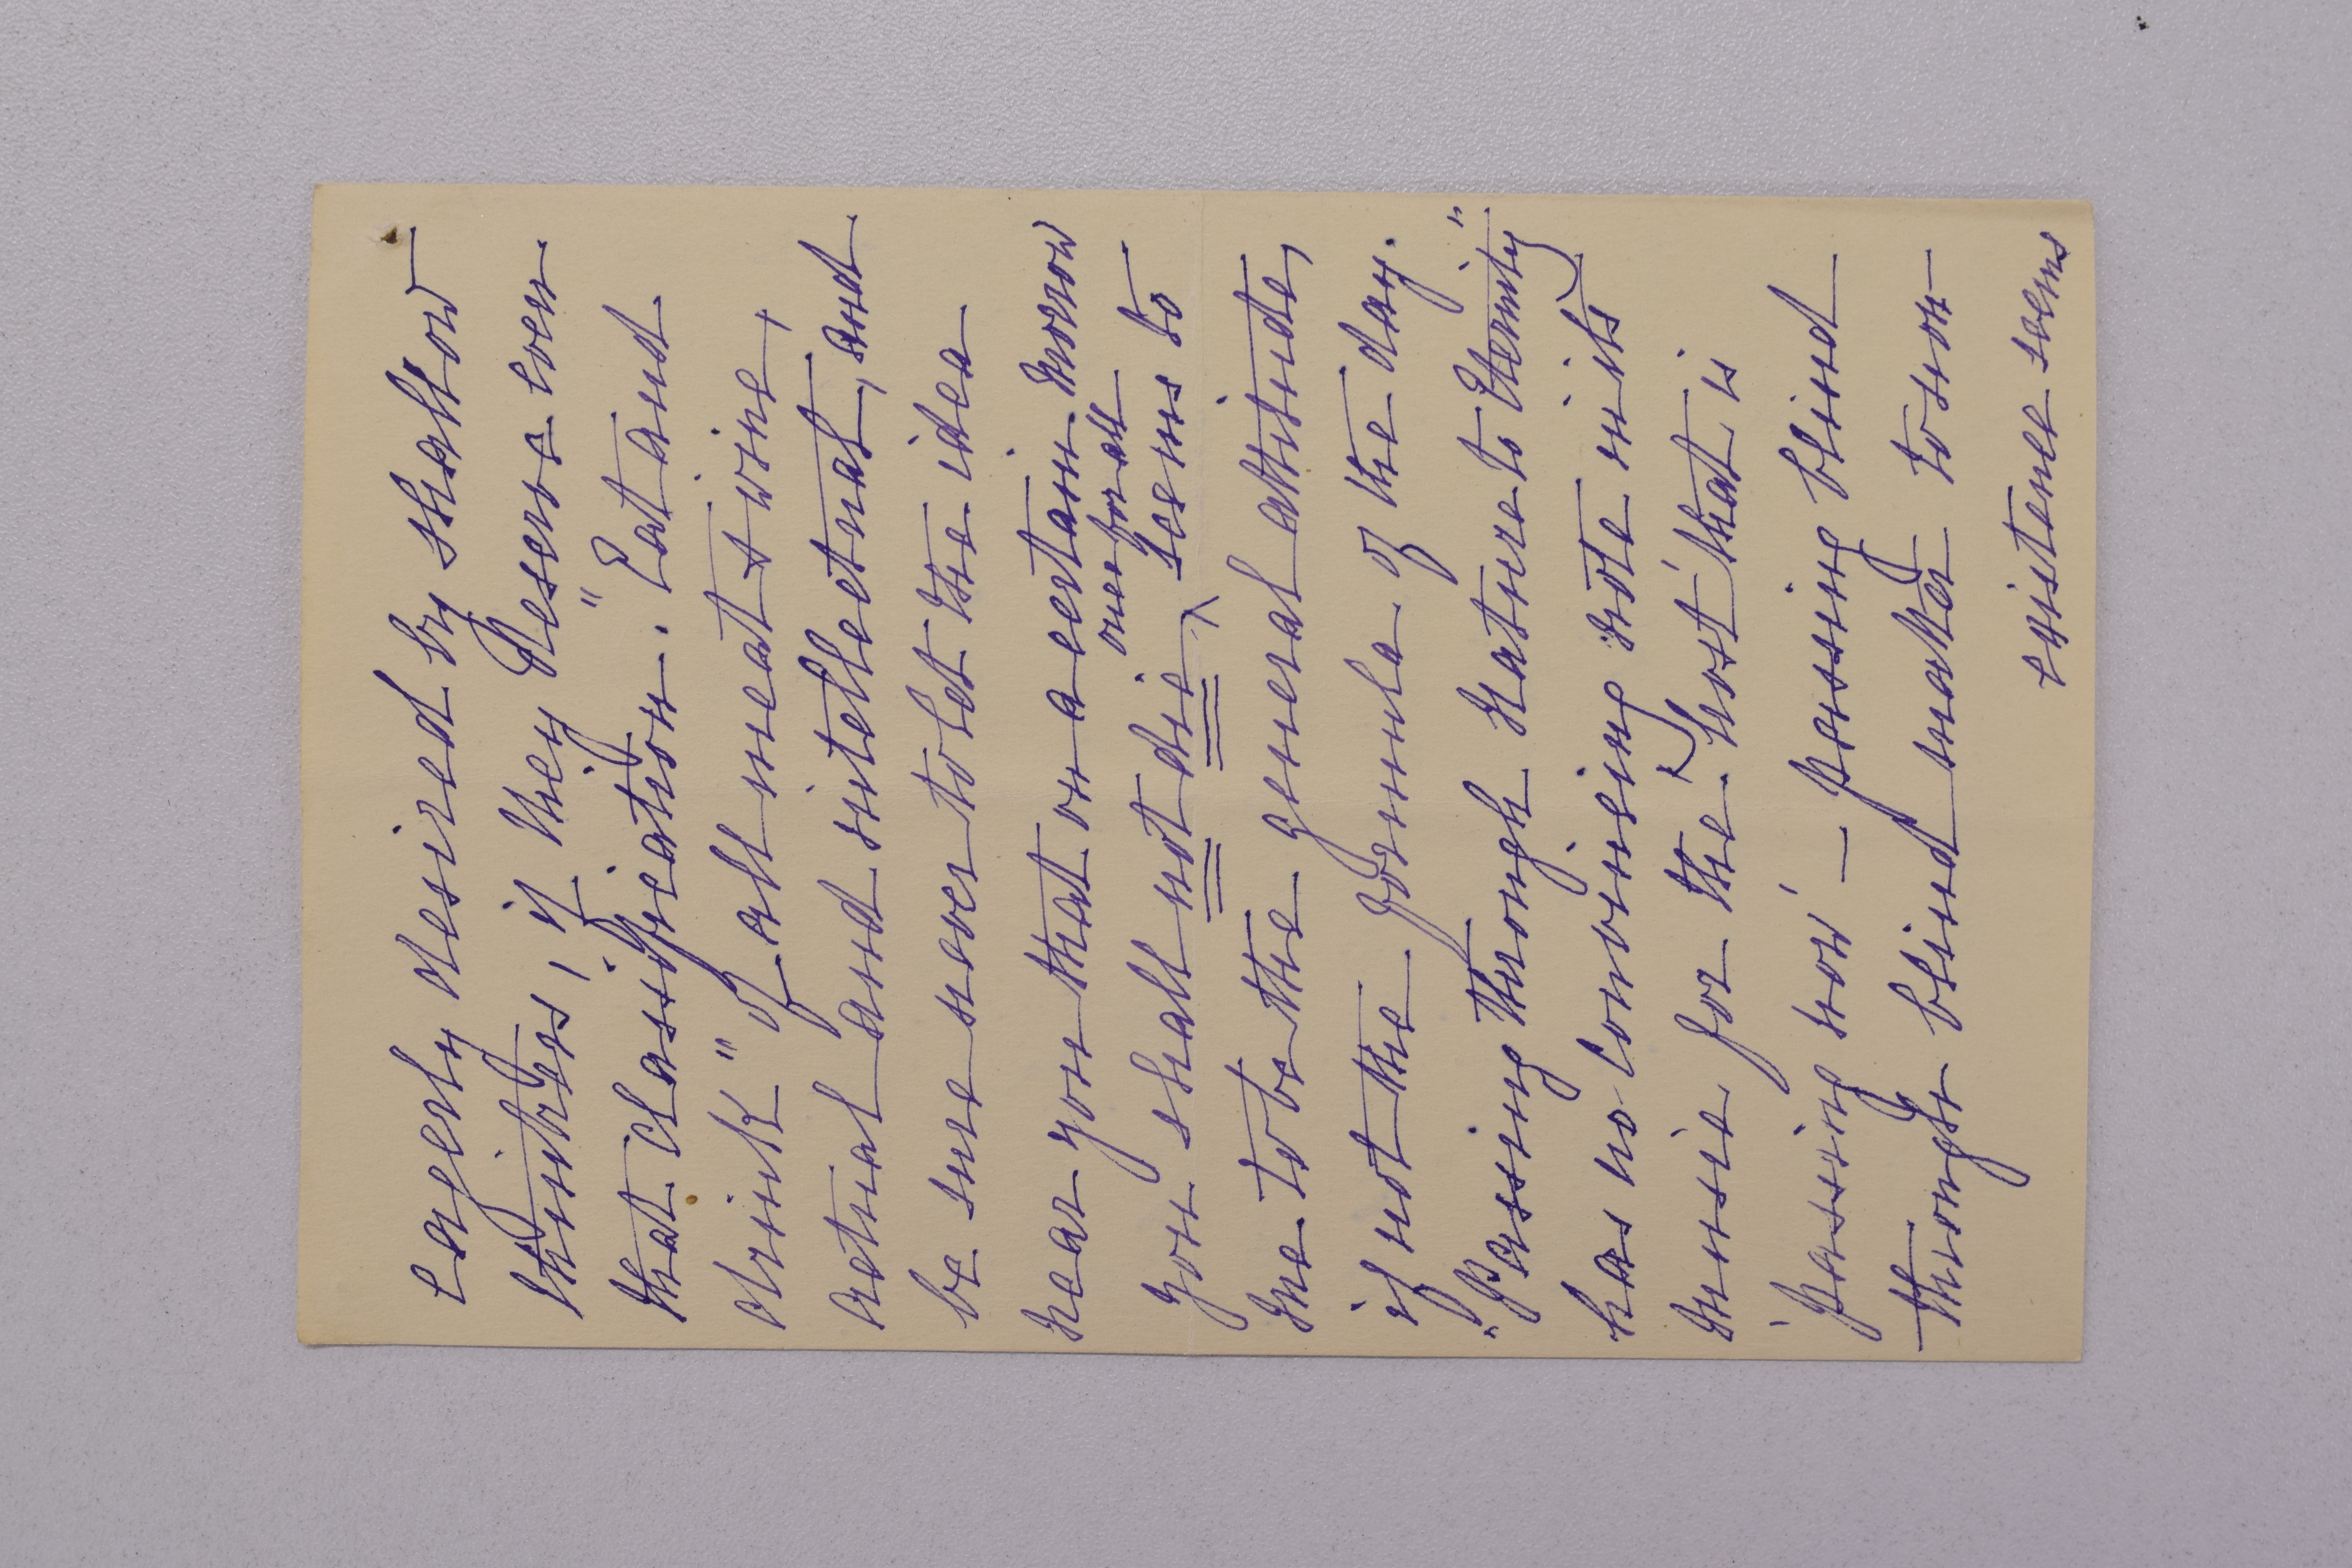 eagerly desired by shallow
thinkers, if they deserve even
that classification. "Eat and
drink" of all meat & wine,
actual and intellectual, and
be sure never to let the idea
near you that on a certain morrow
once for all
you shall not die, seems to
me to be the general attitude,
if not the formula of the day.
"Passing through nature to Eternity"
has no convincing note in its
music for the host that is
'passing now' – passing blind
through blind matter to non-
existence seems